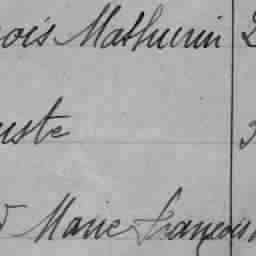 ois Mathurin
uste
Marie François